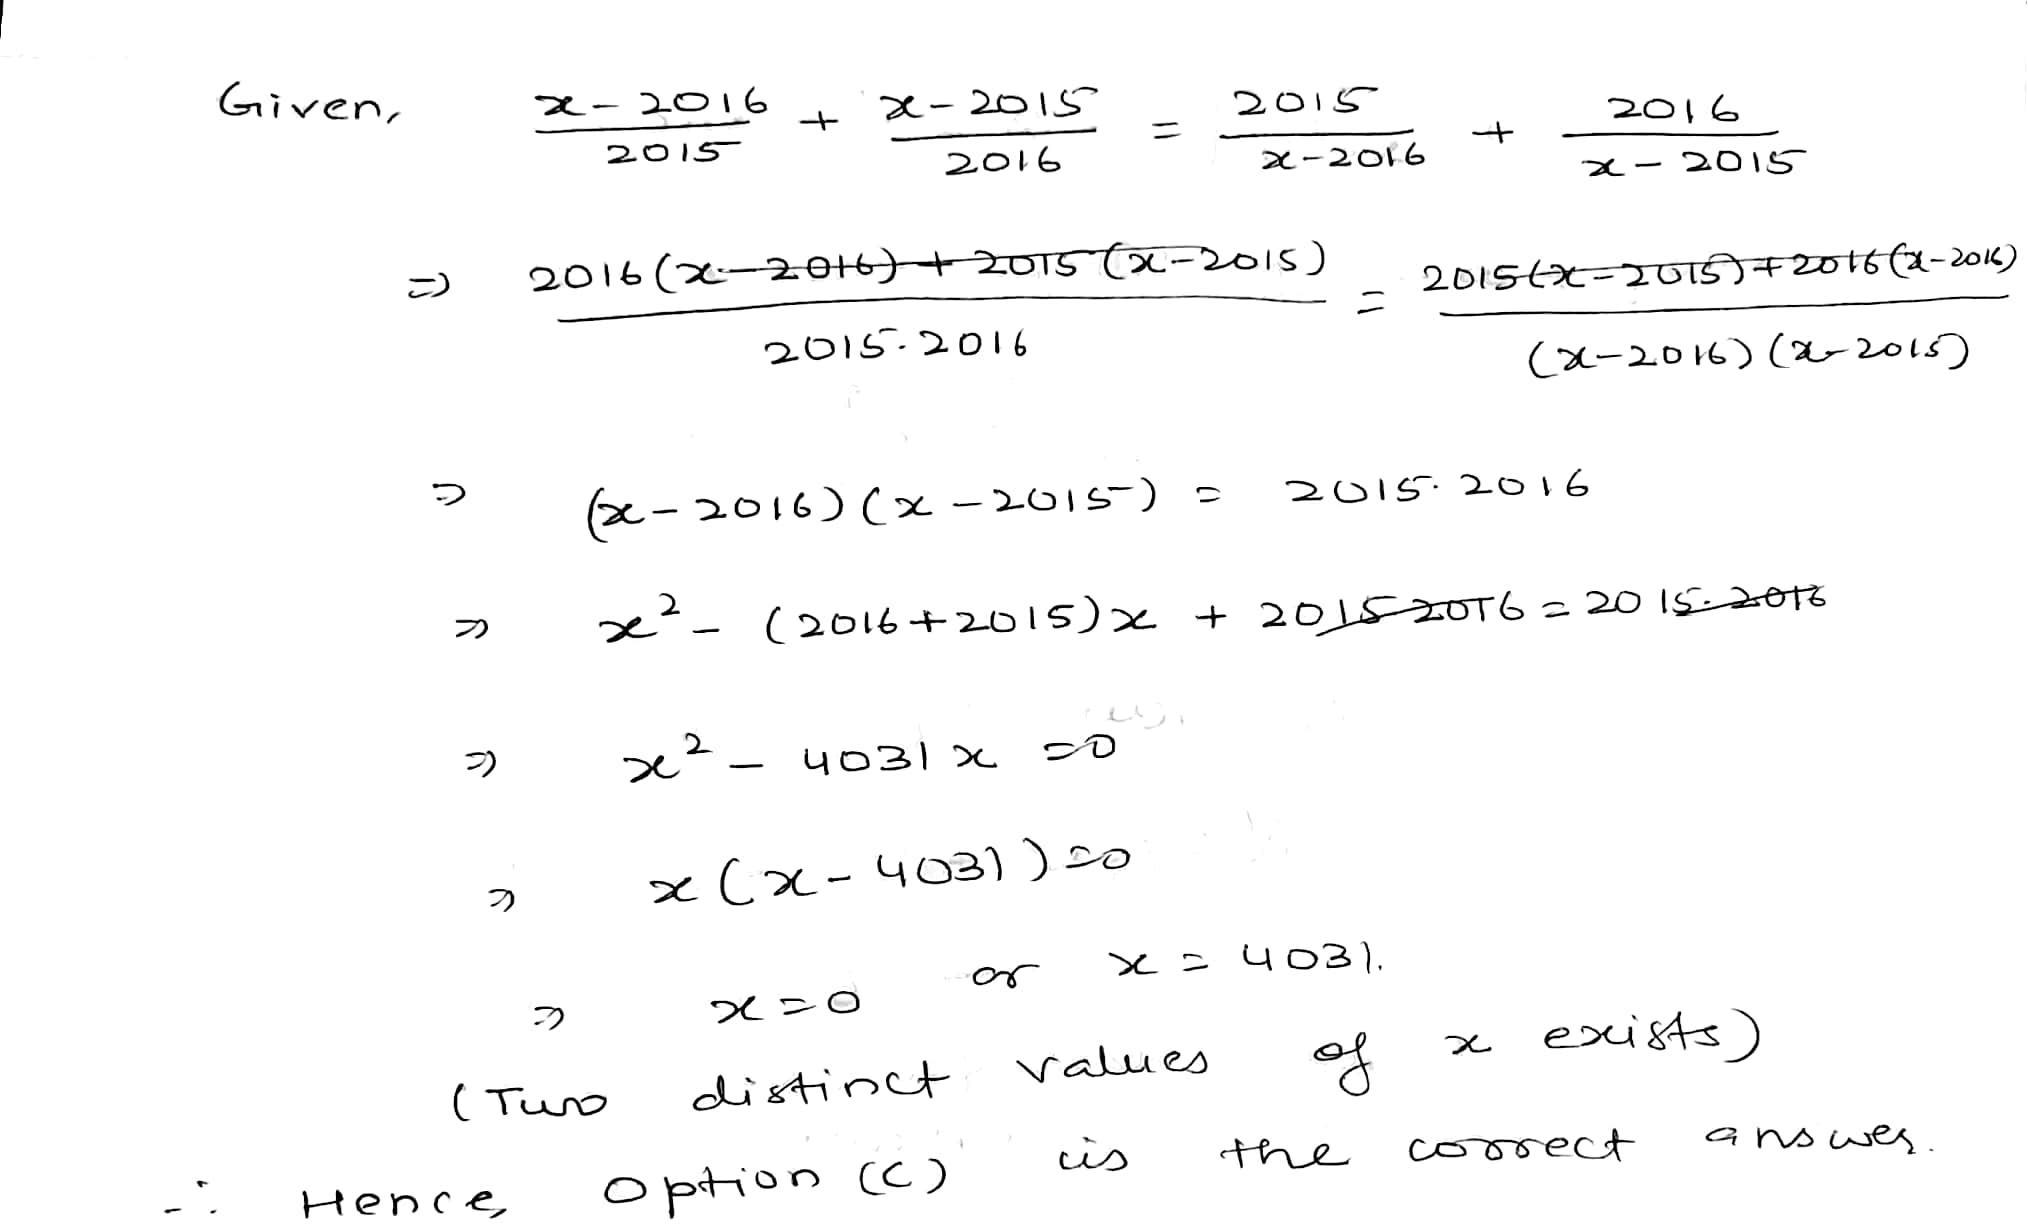 Given, (x-2016)/2015 + (x-2015)/2016 = 2015/(x-2016) + 2016/(x-2015)
=> (2016(x-2016)+2015(x-2015))/(2015.2016) = (2015(x-2015)+2016(x-2016))/((x-2016)(x-2015))
=> (x-2016)(x-2015) = 2015.2016
=> x² - (2016+2015)x + 2015 2016 = 2015.2016
=> x² - 4031x = 0
=> x(x-4031) = 0
=> x=0 or x = 4031.
(Two distinct values of x exists)
∴ Hence, option (c) is the correct answer.